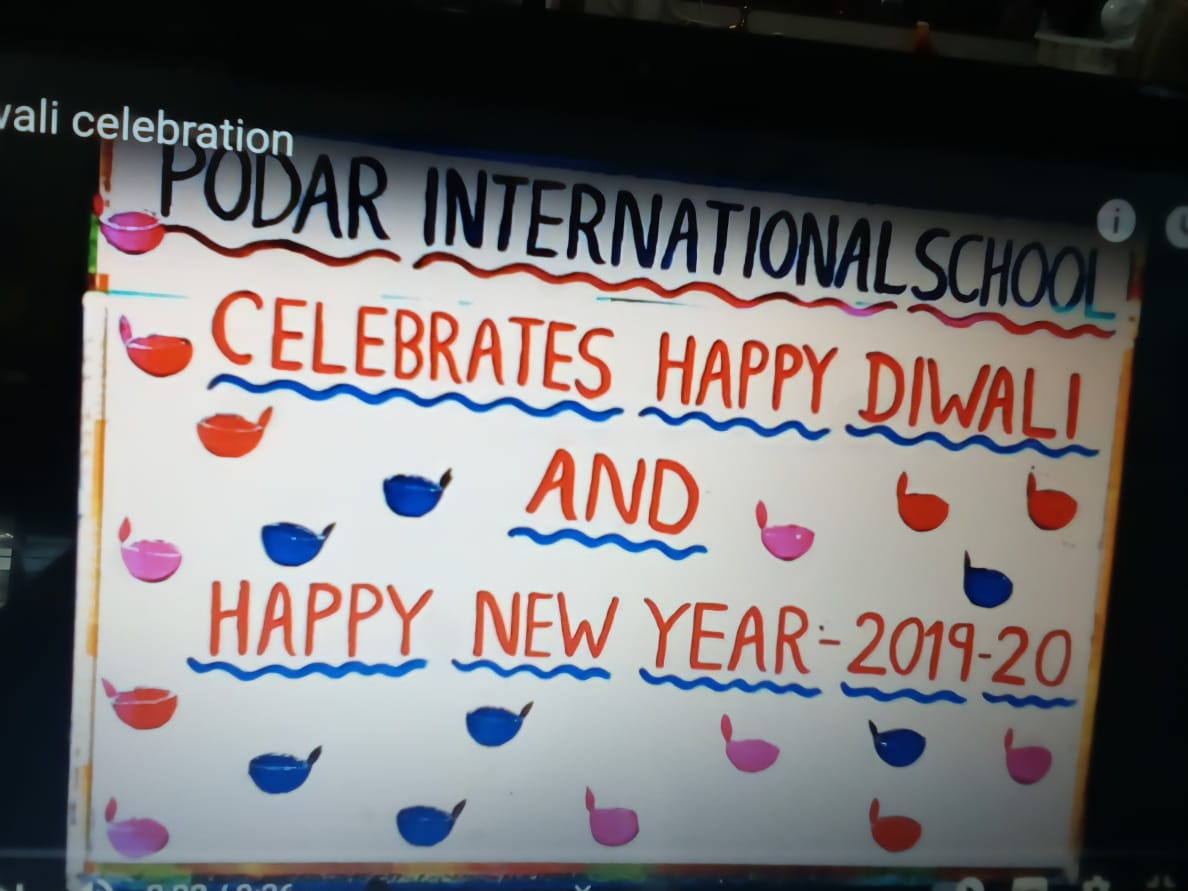 celebration
PODAR INTERNATIONAL SCHOOL
CELEBRATES HAPPY DIWALI
AND
HAPPY NEW YEAR:-2019-20